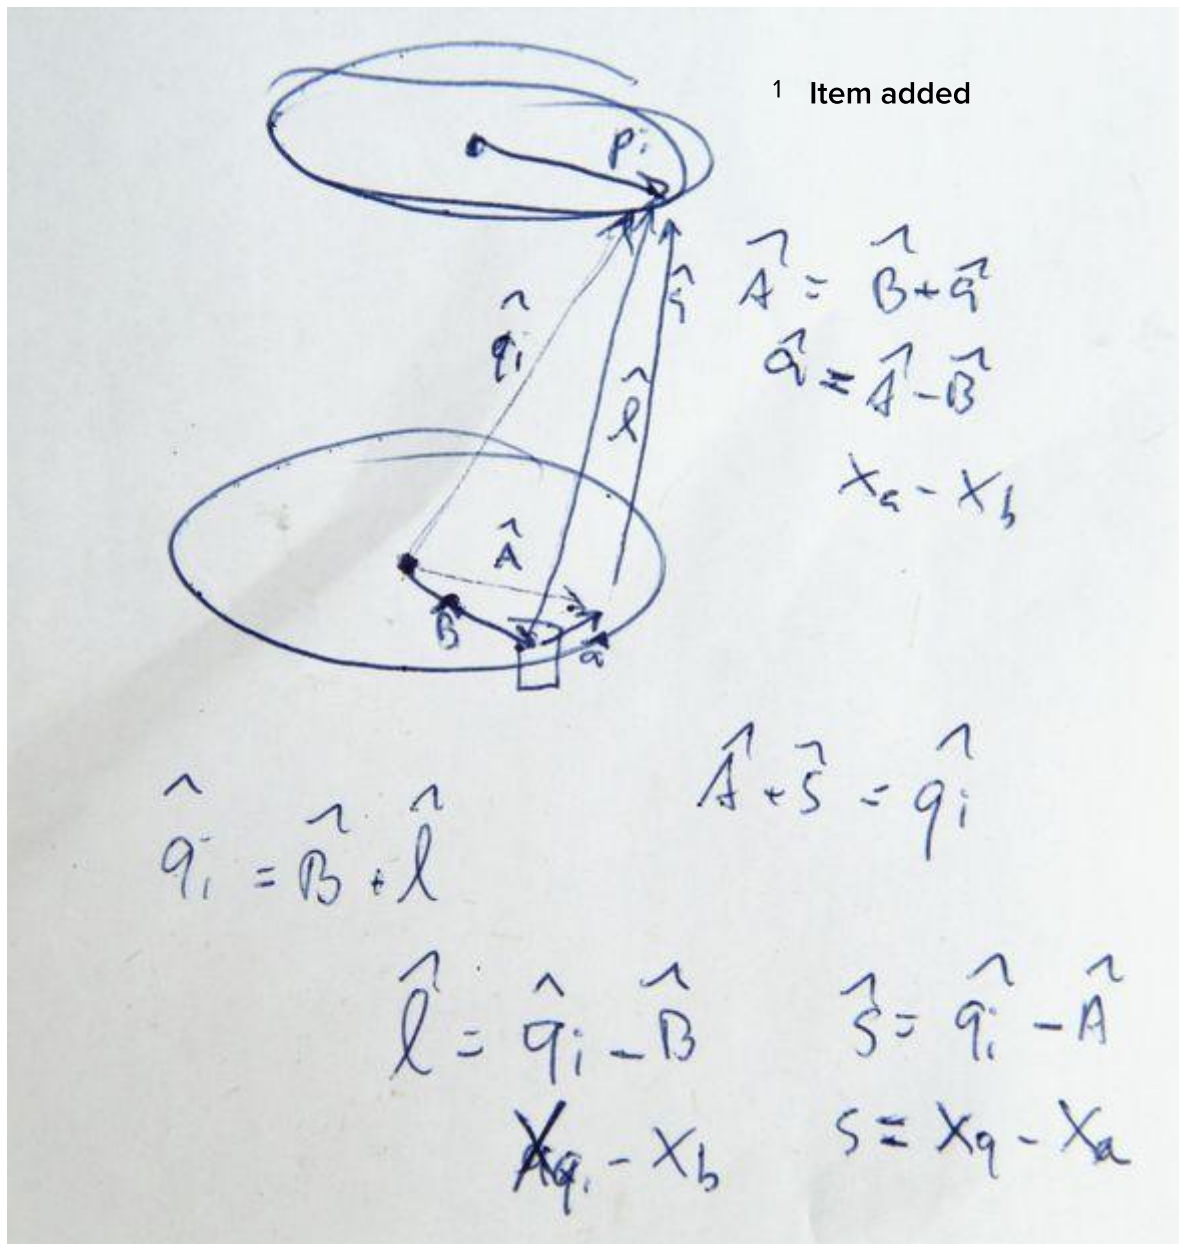 1 Item added
Pi
q⃗i
l⃗
A⃗ = B⃗ + a⃗
a⃗ = A⃗ - B⃗
Xa - Xb
A⃗
B
a
A⃗ + s⃗ = q⃗i
q⃗i = B⃗ + l⃗
l⃗ = q⃗i - B⃗
s⃗ = q⃗i - A⃗
Xqi - Xb
s = Xq - Xa